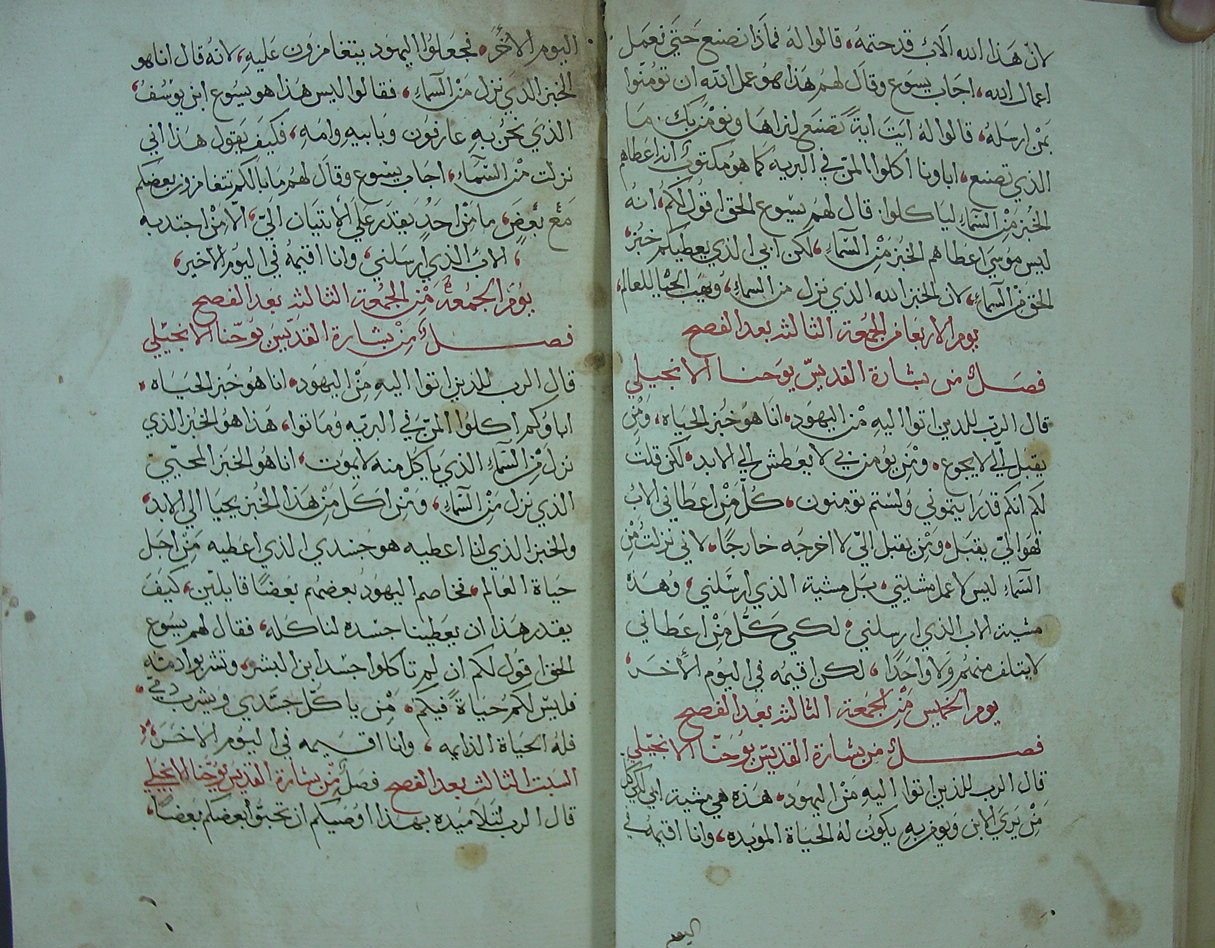 لان هذا الله الاب قد ختمه، قالوا له فماذا نصنع حتي نعمل
اعمال الله، اجاب يسوع وقال لهم هذا هو عمل الله ان تومنوا
بمن ارسله، قالوا له ايت اية تصنع لنراها ونومن بك، ما
الذي تصنع، اباونا اكلوا المن في البريه كما هو مكتوب انه اعطاهم
الخبز من السماء لياكلوا، قال لهم يسوع الحق اقول لكم، انه
ليس موسي اعطاهم الخبز من السماء، لكن ابي الذي يعطيكم خبز
الحق من السماء، لان الخبز الله الذي نزل من السماء، ويهب الحياه للعالم،
يوم الاربعا من الجمعة الثالثة بعد الفصح
فصل من بشارة القديس يوحنا الانجيلي
قال الرب للذين اتوا اليه من اليهود، انا هو خبز الحياه، ومن
يقبل الي لا يجوع، ومن يومن بي لا يعطش الي الابد، لكن قلت
لكم انكم قد رايتموني ولستم تومنون، كل من اعطاني الاب
فهو الي يقبل، ومن يقبل الي لا اخرجه خارجا، لاني نزلت من
السماء ليس لاعمل مشيتي، بل مشية الذي ارسلني، وهذه
مشية الاب الذي ارسلني، لكي كل من اعطاني
لا يتلف منهم ولا واحدا، لكن اقيمه في اليوم الاخر،
يوم الخميس من الجمعة الثالثة بعد الفصح
فصل من بشارة القديس يوحنا الانجيلي
قال الرب للذين اتوا اليه من اليهود، هذه هي مشية ابي لكي كل
من يري الابن ويومن به يكون له الحياة الموبده، وانا اقيمه في
اليوم
اليوم الاخر، فجعلوا اليهود يتغامزون عليه، لانه قال انا هو
الخبز الذي نزل من السماء، فقالوا اليس هذا هو يسوع ابن يوسف
الذي نحن به عارفون وبابيه وامه، فكيف يقول هذا اني
نزلت من السماء، اجاب يسوع وقال لهم ما بالكم تتغامزون بعضكم
مع بعض، ما من احد يقدر علي الاتيان الي، الا من اجتدبه
الاب الذي ارسلني، وانا اقيمه في اليوم الاخير،
يوم الجمعة من الجمعة الثالثة بعد الفصح
فصل من بشارة القديس يوحنا الانجيلي
قال الرب للذين اتوا اليه من اليهود، انا هو خبز الحياه،
اباوكم اكلوا المن في البريه وماتوا، هذا هو الخبز الذي
نزل من السماء الذي ياكل منه لا يموت، انا هو الخبز المحيي
الذي نزل من السماء، ومن اكل من هذا الخبز يحيا الي الابد،
والخبز الذي انا اعطيه هو جسدي الذي اعطيه من اجل
حياة العالم، فخاصم اليهود بعضهم بعضا قايلين، كيف
يقدر هذا ان يعطينا جسده لناكله، فقال لهم يسوع
الحق اقول لكم ان لم تاكلوا جسد ابن البشر، وتشربوا دمه
فليس لكم حياة فيكم، من ياكل جسدي ويشرب دمي،
فله الحياة الدايمه، وانا اقيمه في اليوم الاخر،
السبت الثالث بعد الفصح فصل من بشارة القديس يوحنا الانجيلي
قال الرب لتلاميده بهذا اوصيكم ان تحبوا بعضكم بعضا،